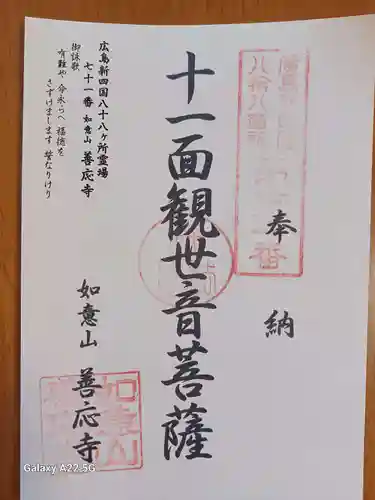 奉納
十一面観世音菩薩
如意山 善応寺
広島新四国八十八ヶ所霊場
七十一番 如意山 善応寺
御詠歌
有難や 命永らへ 福徳を
さずけまします 誓なりけり
如意山
Galaxy A22 5G